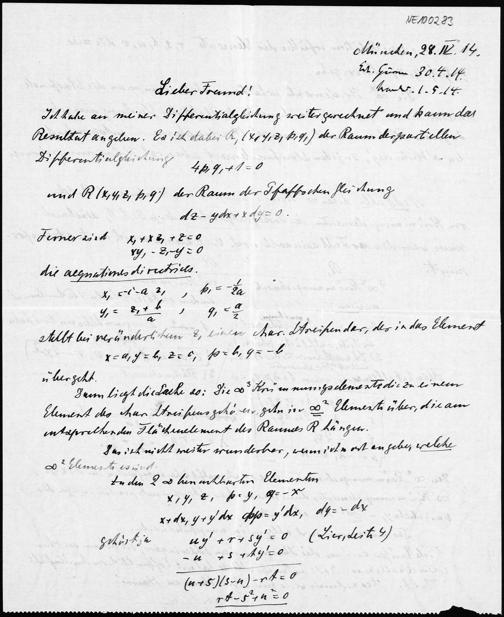 NE100283
München, 28. IV. 14.
30.4.14.
1.5.14.
Lieber Freund!
Ich habe an meiner Differentialgleichung weitergerechnet und kann das
Resultat angeben. Es ist dabei R₁ (x₁ y₁ z₁ p₁ q₁) der Raum der partiellen
Differentialgleichung
4p₁q₁+1=0
und R (x, y, z, p, q) der Raum der Pfaffschen Gleichung
dz-ydx+xdy=0.
Ferner sind x₁+xz₁+z=0
xy₁-z₁-y=0
die aequationes directrices.
x₁=-c-az₁ , p₁=-1/2a
y₁=z₁+b/a , q₁=a/2
stellt bei veränderlichem z₁ einen char. Streifen dar, der in das Element
x=a, y=b, z=c, p=b, q=-b
übergeht.
Nun liegt die Sache so: Die ∞³ Krümmungselemente die zu einem
Element des char. Streifens gehören, gehn in ∞² Elemente über, die am
entsprechenden Flächenelement des Raumes R hängen.
Das ist nicht weiter wunderbar, wenn ich nicht angebe, welche
∞² Elemente es sind.
Zu den 2 ∞ benachbarten Elementen
x, y, z, p=y, q=-x
x+dx, y+y'dx dp=y'dx, dq=-dx
gehört ja uy'+r+sy'=0 (Lie, Seite 4)
-u+s+ty'=0
(u+s)(s-u)-rt=0
rt-s²+u²=0